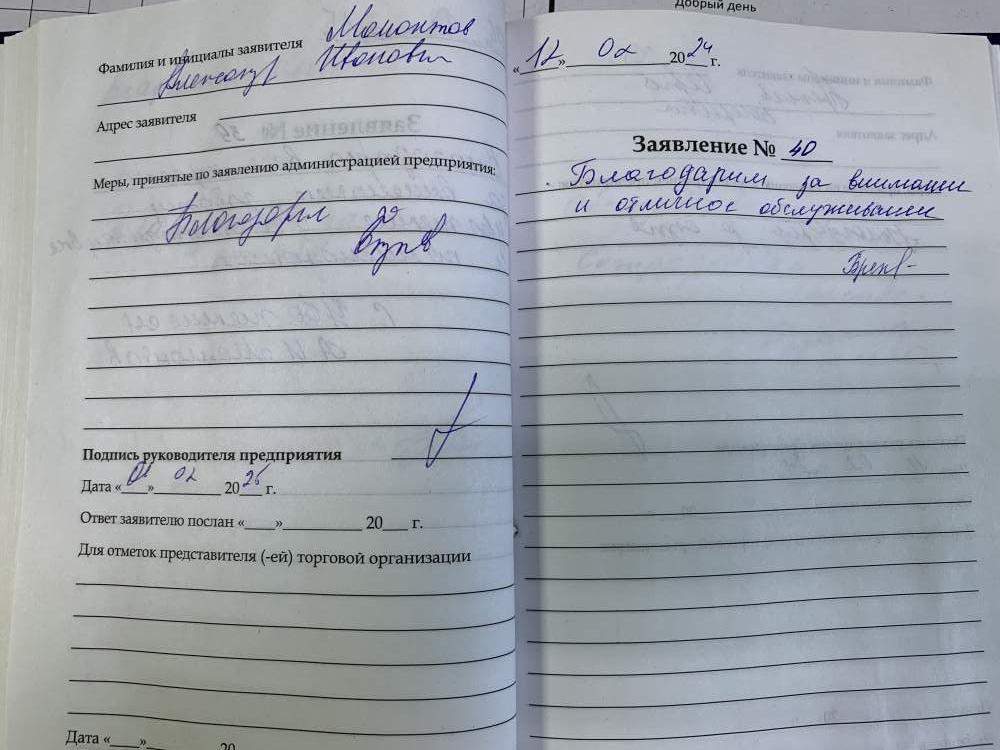 Добрый день
Фамилия и инициалы заявителя Мамонтов
Александр Иванович
Адрес заявителя
Меры, принятые по заявлению администрацией предприятия:
Благодарим за
Подпись руководителя предприятия
Дата «01» 02 2025 г.
Ответ заявителю послан «___»__________ 20___ г.
Для отметок представителя (-ей) торговой организации
Дата «___»__________ 20
«12» 02 2024 г.
Заявление № 40
Благодарим за внимание
и отличное обслуживание